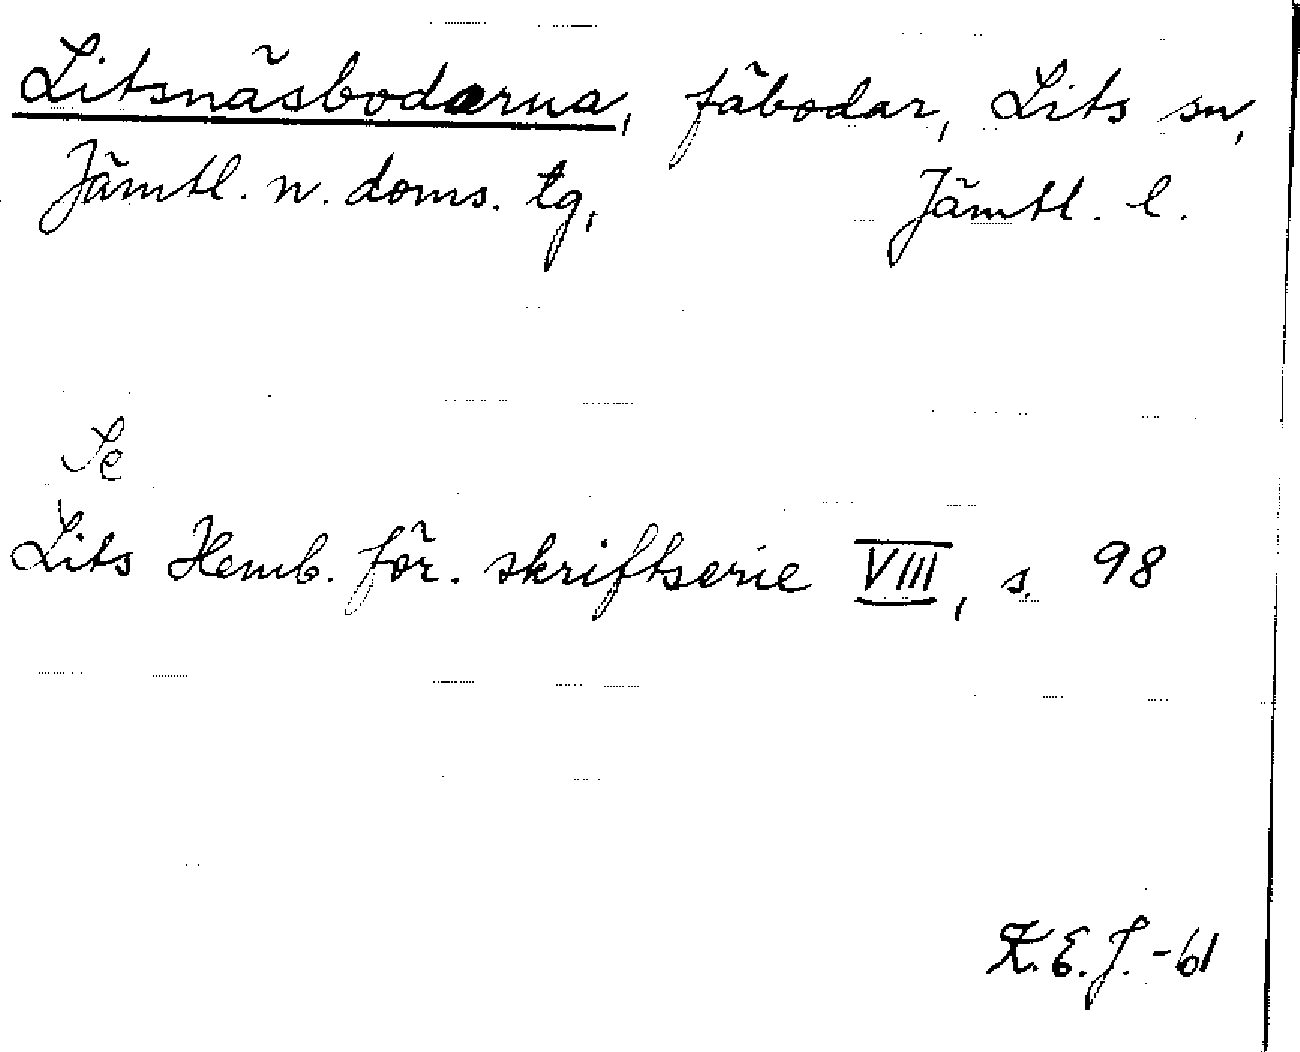 Litsnäsbodarna, fäbodar, Lits sn,
Jämtl. n. doms. tg, Jämtl. l.
Se
Lits Hemb. för. skriftserie VIII, s. 98
K.E.J. -61